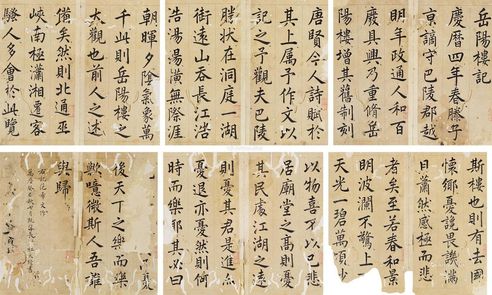 岳陽樓記
慶曆四年春滕子
京謫守巴陵郡越
明年政通人和百
廢具興乃重脩岳
陽樓增其舊制刻
唐賢今人詩賦於
其上属予作文以
記之予觀夫巴陵
勝狀在洞庭一湖
銜遠山吞長江浩
浩湯湯橫無際涯
朝暉夕陰氣象萬
千此則岳陽樓之
大觀也前人之述
備矣然則北通巫
峽南極瀟湘遷客
騷人多會於此覽
斯樓也則有去國
懷鄉憂讒畏譏滿
目蕭然感極而悲
者矣至若春和景
明波瀾不驚上
天光一碧萬頃
以物喜不以己悲
居廟堂之高則憂
其民處江湖之遠
則憂其君是進亦
憂退亦憂然則何
時而樂耶其必曰
後天下之樂而樂
歟噫微斯人吾誰
與歸